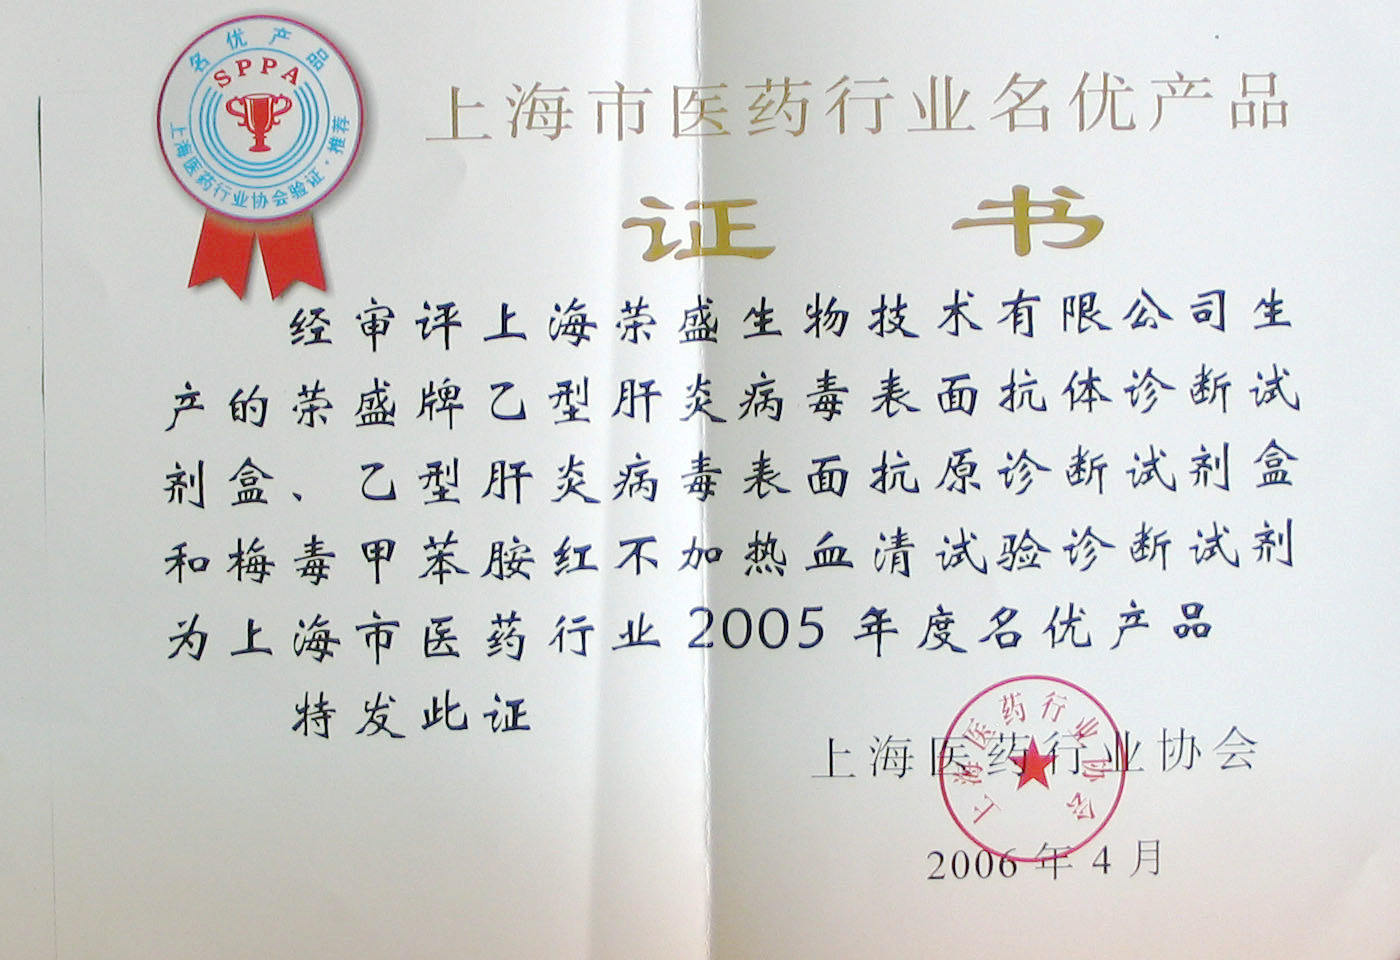 名优产品
SPPA
上海医药行业协会验证·推荐
上海市医药行业名优产品
证 书
经审评上海荣盛生物技术有限公司生
产的荣盛牌乙型肝炎病毒表面抗体诊断试
剂盒、乙型肝炎病毒表面抗原诊断试剂盒
和梅毒甲苯胺红不加热血清试验诊断试剂
为上海市医药行业2005年度名优产品
特发此证
上海医药行业协会
上海医药行业协会
2006年4月